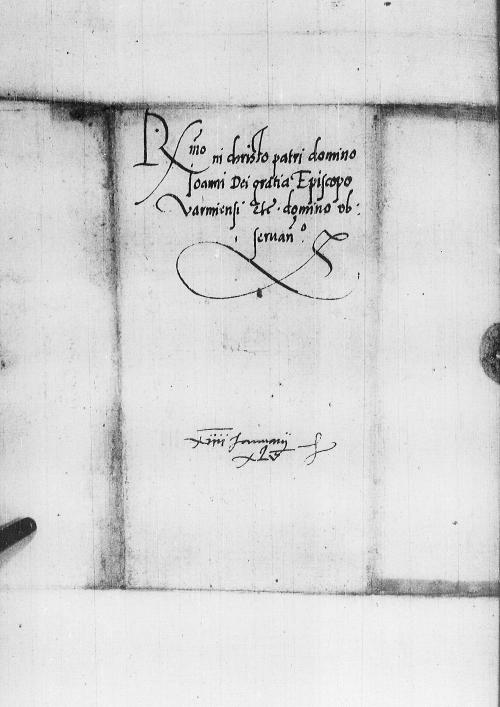 Rx mo in christo patri domino
Joanni Dei gratia Episcopo
Varmiensi etc. domino ob:
seruan°.
Xiiii Januarij
XLV